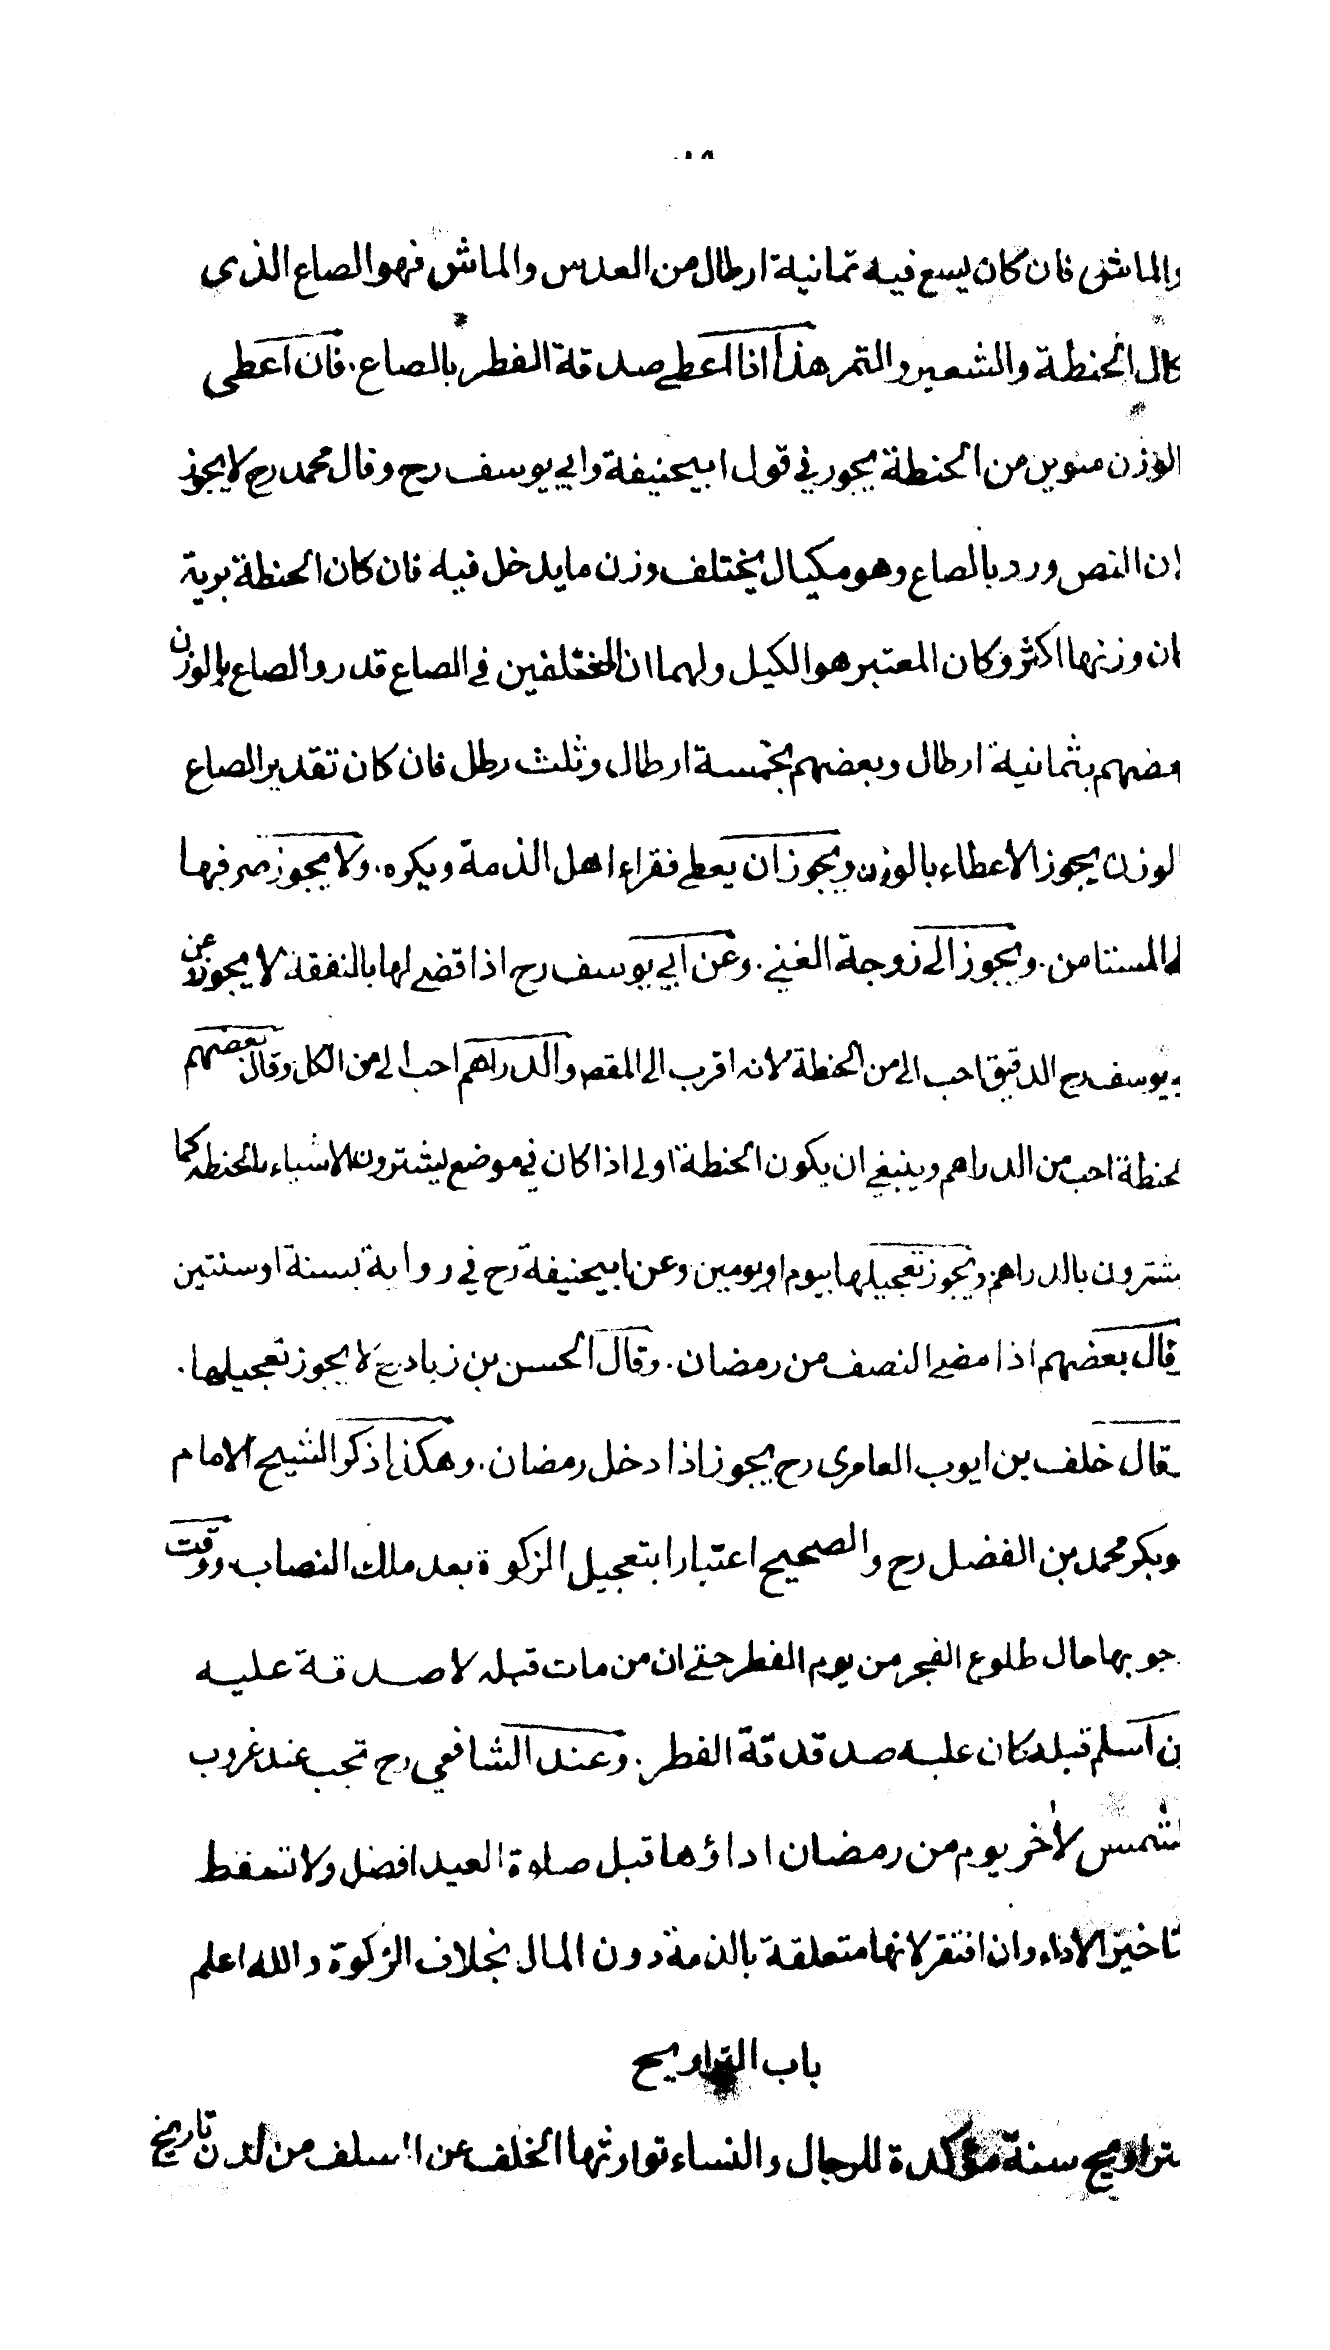 والماش فان كان يسع فيه ثمانية ارطال من العدس والماش فهو الصاع الذى
كال الحنطة والشعير والتمر هذا اذا اعطى صدقة الفطر بالصاع. فان اعطى
الوزن منوين من الحنطة يجوز في قول ابيحنيفة وابي يوسف رح وقال محمد رح لا يجوز
لان النص ورد بالصاع وهو مكيال يختلف وزن ما يدخل فيه فان كان الحنطة برية
ان وزنها اكثر وكان المعتبر هو الكيل ولهما ان المختلفين في الصاع قدروا الصاع بالوزن
عضهم بثمانية ارطال وبعضهم بخمسة ارطال وثلث رطل فان كان تقدير الصاع
لوزن يجوز الاعطاء بالوزن ويجوز ان يعطى فقراء اهل الذمة ويكره. ولا يجوز صرفها
المستامن. ويجوز الى زوجة الغني. وعن ابي يوسف رح اذا قضى لها بالنفقة لا يجوز وعن
بي يوسف رح الدقيق احب الى من الحنطة لانه اقرب الى المقصود والدراهم احب الى من الكل وقال بعضهم
لحنطة احب من الدراهم وينبغي ان يكون الحنطة اولى اذا كان في موضع يشترون الاشياء بالحنطة كما
يشترون بالدراهم ويجوز تعجيلها بيوم او يومين وعن ابيحنيفة رح في رواية بسنة او سنتين
وقال بعضهم اذا مضى النصف من رمضان. وقال الحسن بن زياد رح لا يجوز تعجيلها.
وقال خلف بن ايوب العامرى رح يجوز اذا دخل رمضان. وهكذا ذكر الشيخ الامام
وبكر محمد بن الفضل رح والصحيح اعتبارا بتعجيل الزكوة بعد ملك النصاب. ووقت
جوبها حال طلوع الفجر من يوم الفطر حتى ان من مات قبله لا صدقة عليه
ن اسلم قبله كان عليه صدقدقة الفطر. وعند الشافعي رح تجب عند غروب
لشمس لاخر يوم من رمضان اداؤها قبل صلوة العيد افضل ولا تسقط
تاخير الاداء وان افتقر لانها متعلقة بالذمة دون المال بخلاف الزكوة والله اعلم
باب التراويح
لتراويح سنة مؤكدة للرجال والنساء توارثها الخلف عن السلف من لدن تاريخ